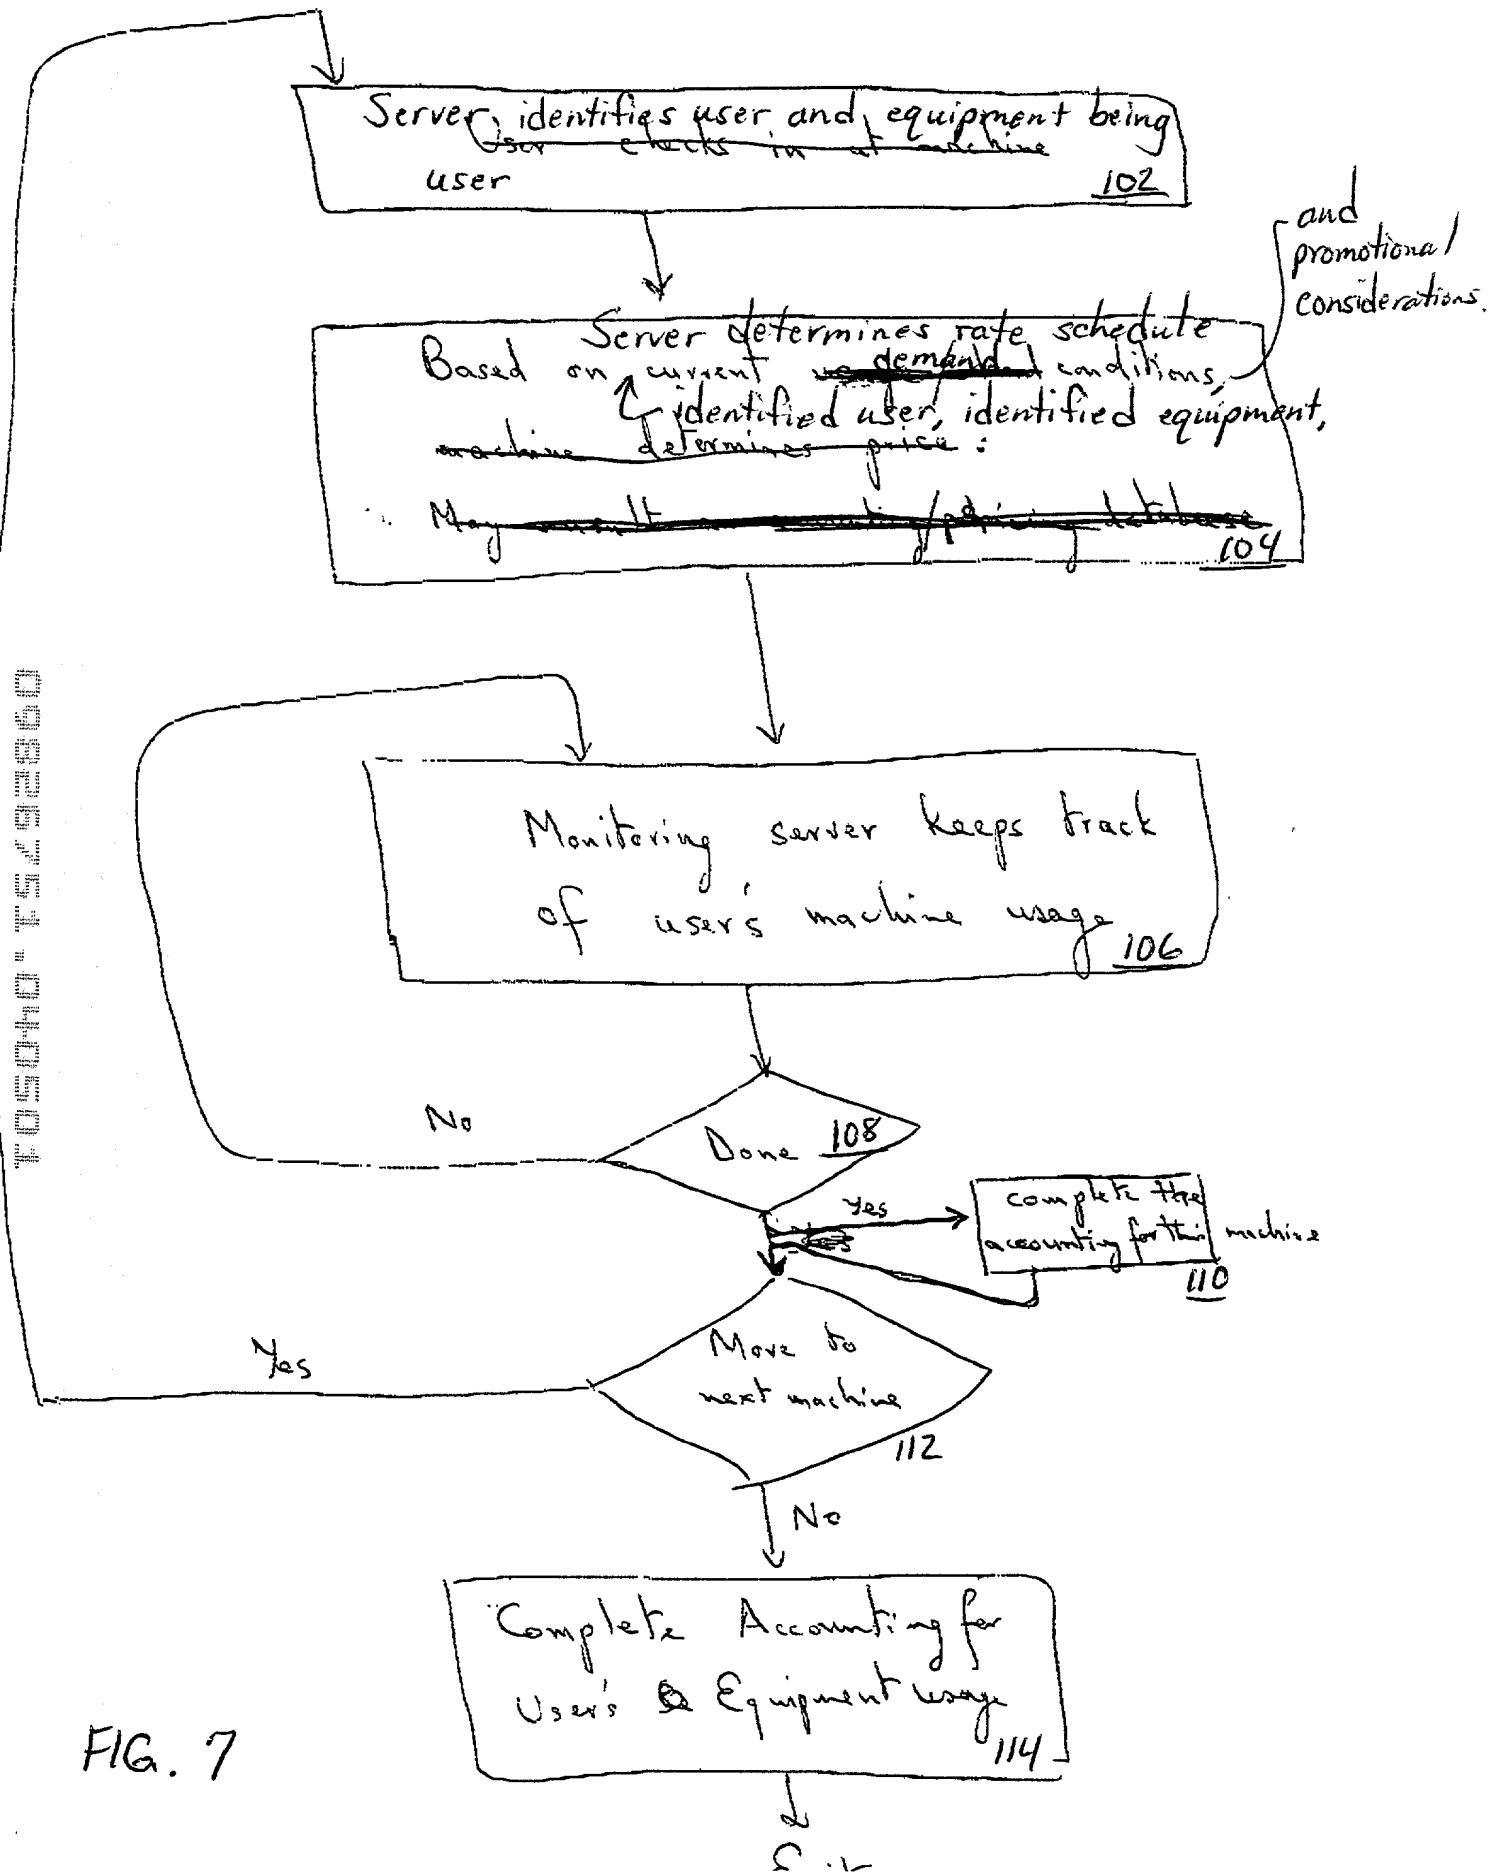 Server identifies user and equipment being
User checks in at machine
user
102
and
promotional
considerations.
Server determines rate schedule
Based on current demand conditions,
identified user, identified equipment,
machine determines price :
May pricing database
104
Monitoring server keeps track
of user's machine usage
106
No
Done 108
Yes
complete the
accounting for this machine
110
Move to
next machine
Yes
112
No
Complete Accounting for
User's Equipment usage
114
FIG. 7
Exit
09826751.040501